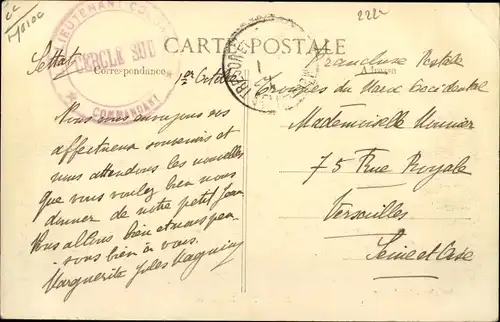 Maroc
222
LIEUTENANT
CERCLE SUD
COMMANDANT
CARTE POSTALE
Correspondance
Adresse
Settat
1er Octobre
Nous vous envoyons nos
affectueux souvenirs et
nous attendons les nouvelles
que vous voulez bien nous
donner de notre petit Jean
Nous allons bien et nous pen-
sons bien à vous.
Marguerite Jules
Franchise Postale
Troupes du Maroc Occidental
Mademoiselle
75 Rue Royale
Versailles
Seine et Oise